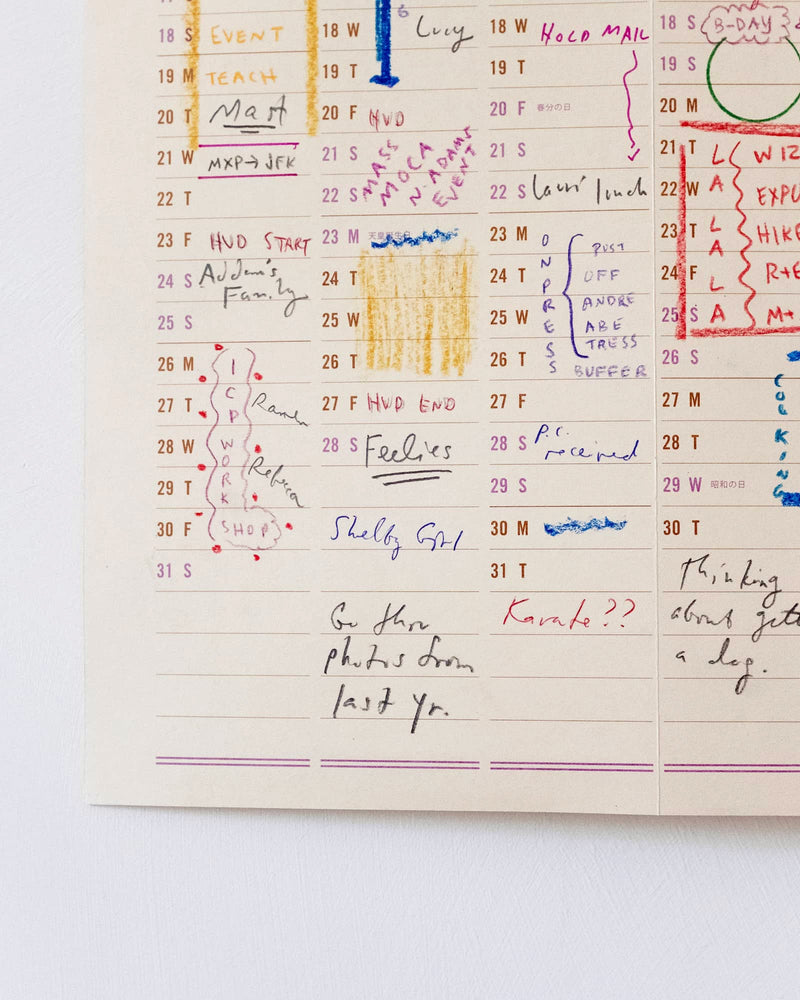 18 S EVENT
19 M TEACH
20 T Mast
21 W MXP→JFK
22 T
23 F HVD START
24 S Addam's
Family
25 S
26 M I
27 T C P Ramen
28 W W O
29 T R K Rebecca
30 F SHOP
31 S
6
18 W Lucy
19 T
20 F HVD
21 S MASS MOCA
22 S N. ADAMS EVENT
23 M 天皇誕生日
24 T
25 W
26 T
27 F HVD END
28 S Feelies
Shelby Girl
Go thru
photos from
last yr.
18 W HOLD MAIL
19 T
20 F 春分の日
21 S
22 S Lauri lunch
23 M ON PUST
24 T PR OFF
ANDRE
25 W E ABE
TRESS
26 T SS BUFFER
27 F
28 S P.C.
received
29 S
30 M
31 T
Karate??
18 S B-DAY
19 S
20 M
21 T L WIZ
22 W A EXPU
23 T L A HIKE
24 F L R+E
25 S A M+
26 S
27 M CO
28 T L K
29 W 昭和の日 ING
30 T
Thinking
about gett
a dog.